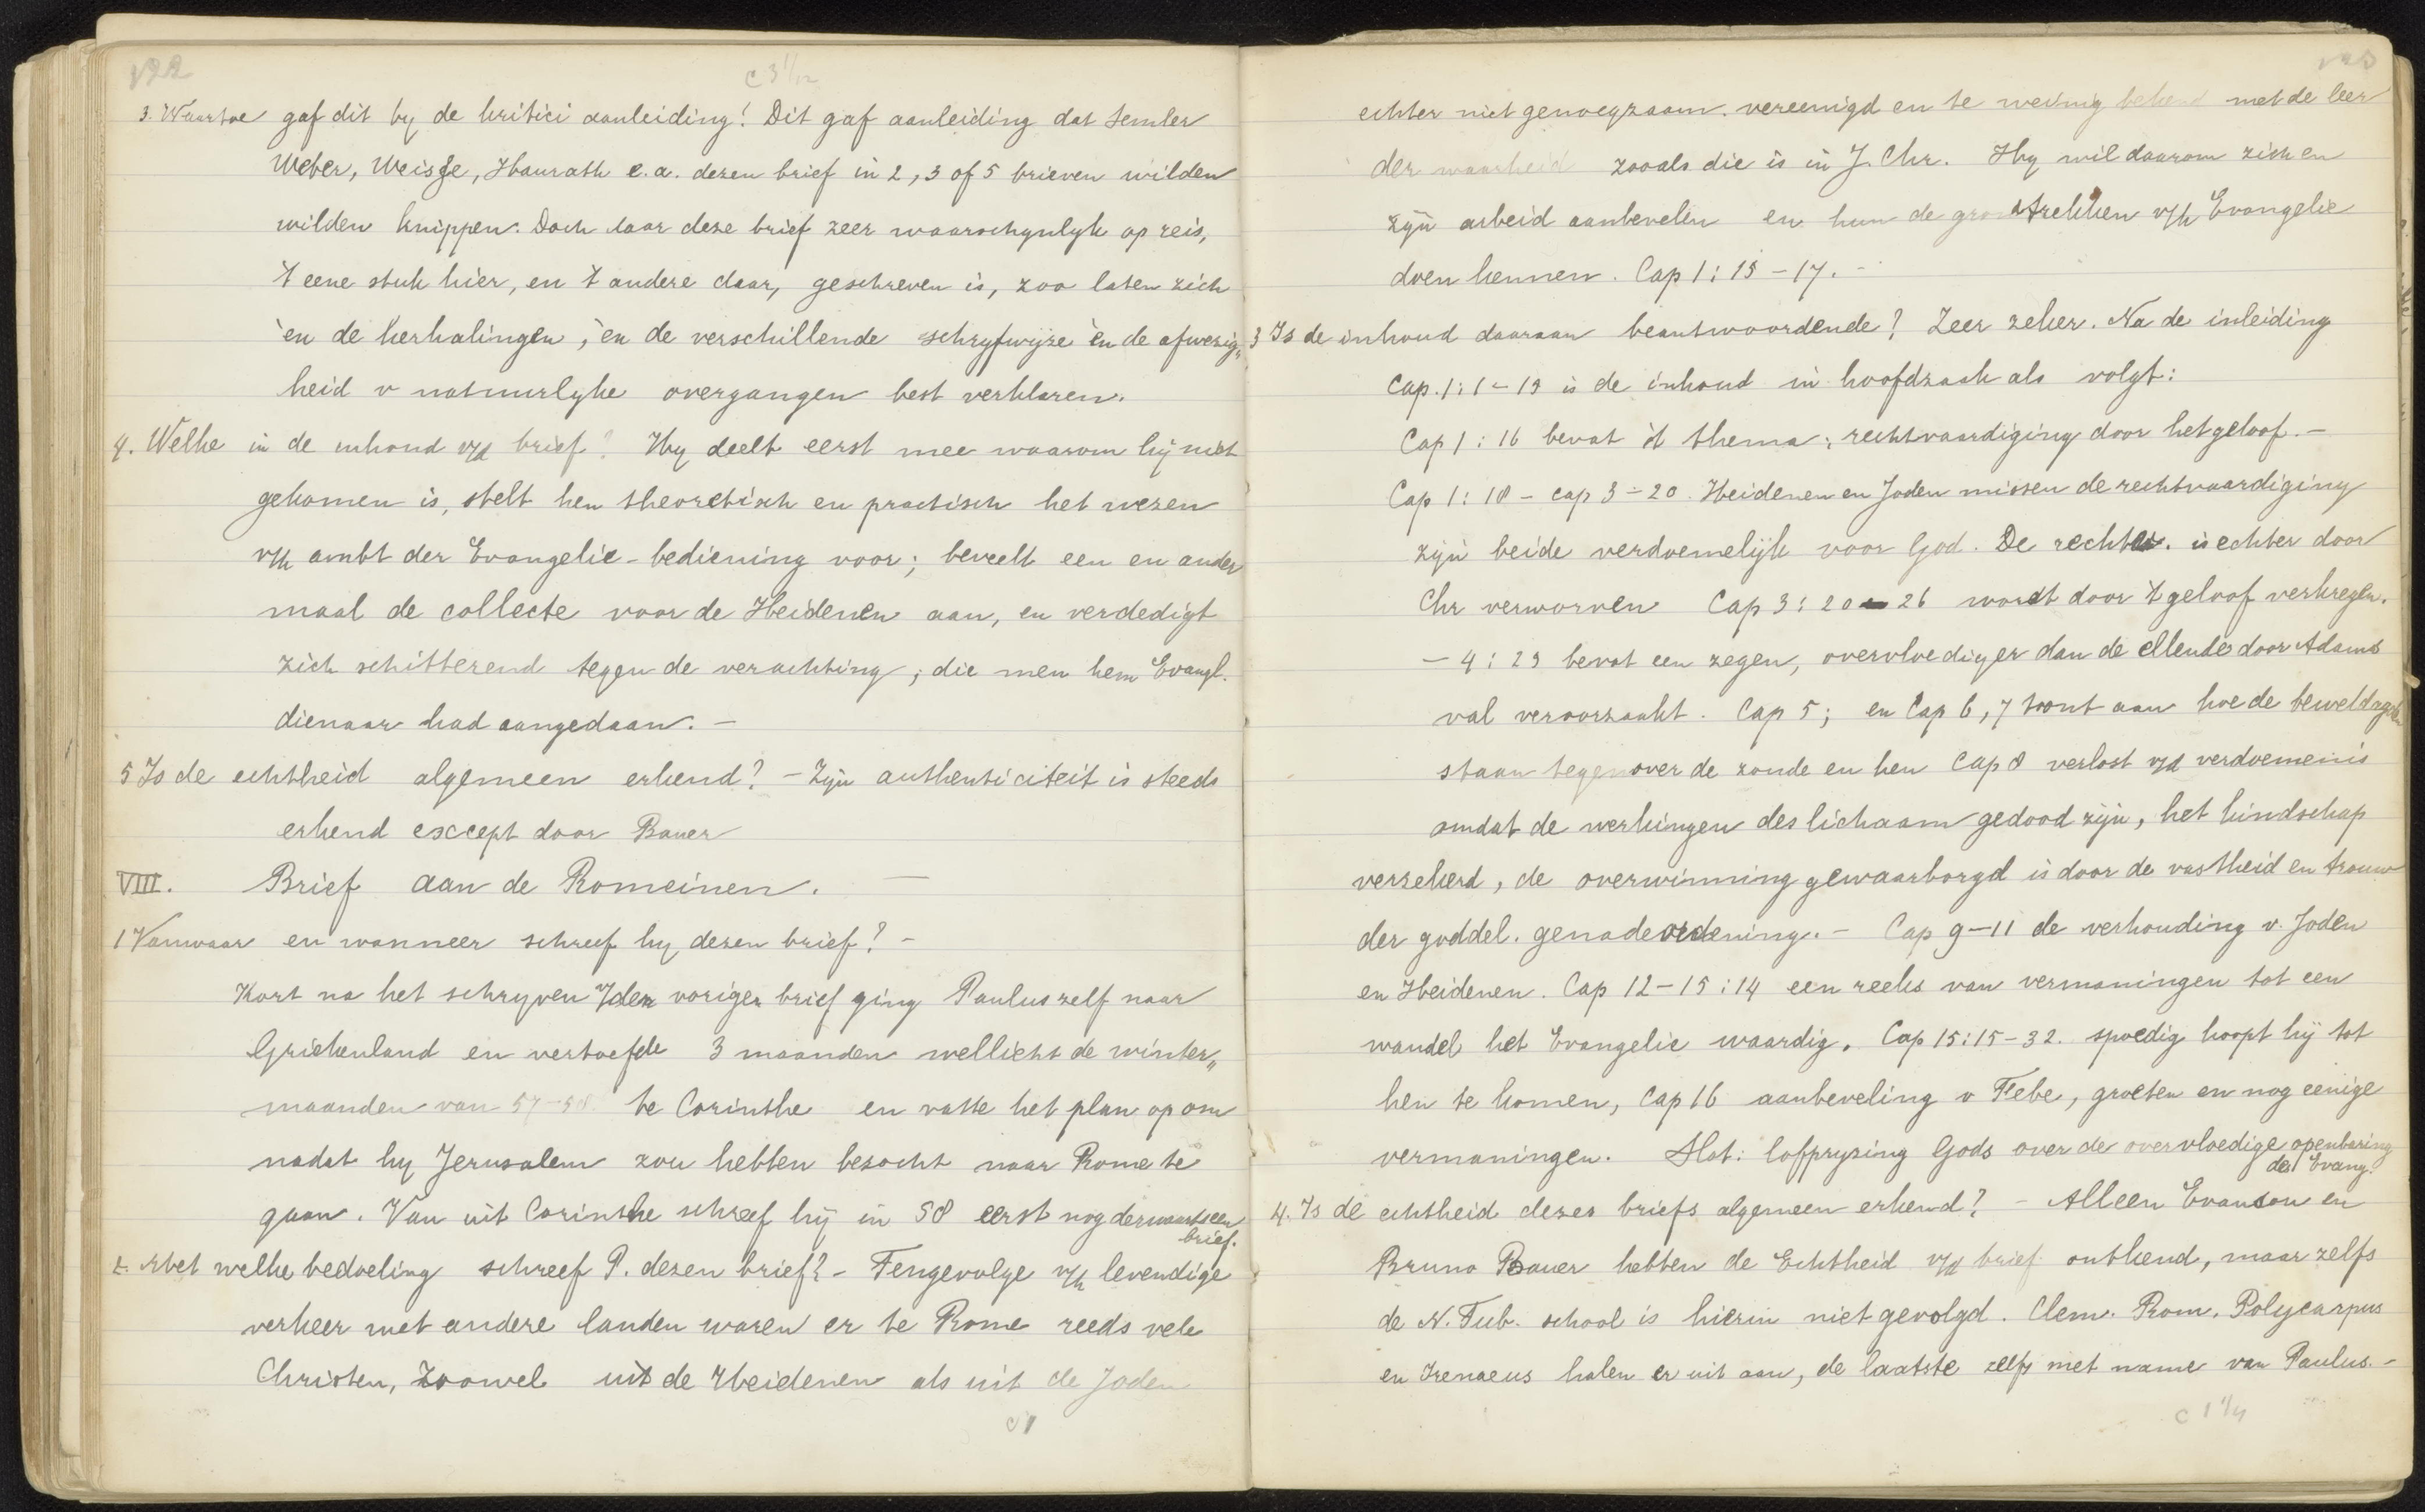 122
c 3 1/12
3. Waartoe gaf dit by de kritici aanleiding? Dit gaf aanleiding dat Semler
Weber, Weisse, Hausrath e.a. dezen brief in 2, 3 of 5 brieven wilden
wilden knippen. Doch daar deze brief zeer waarschynlyk op reis,
't eene stuk hier, en 't andere daar, geschreven is, zoo laten zich
èn de herhalingen, èn de verschillende schryfwyze èn de afwezig„
heid v natuurlyke overgangen best verklaren.
4. Welke is de inhoud v/d brief? Hy deelt eerst mee waarom hij niet
gekomen is, stelt hen theoretisch en practisch het wezen
v/h ambt der Evangelie-bediening voor; beveelt een en ander
maal de collecte voor de Heidenen aan, en verdedigt
zich schitterend tegen de verachting, die men hem Evangl.
dienaar had aangedaan. -
5 Is de echtheid algemeen erkend? - Zijn authenticiteit is steeds
erkend except door Bauer
VIII. Brief aan de Romeinen. —
1 Vanwaar en wanneer schreef hy dezen brief? -
Kort na het schryven v/den vorigen brief ging Paulus zelf naar
Griekenland en vertoefde 3 maanden wellicht de winter„
maanden van 57-58 te Corinthe en vatte het plan op om
nadat hy Jerusalem zou hebben bezocht naar Rome te
gaan. Van uit Corinthe schreef hij in 58 eerst nog derwaarts een
brief.
2. Met welke bedoeling schreef P. dezen brief? - Tengevolge v/h levendige
verkeer met andere landen waren er te Rome reeds vele
Christen, zoowel uit de Heidenen als uit de Joden
c 1
123
echter niet genoegzaam vereenigd en te weinig bekend met de leer
der waarheid zooals die is in J. Chr. Hy wil daarom zich en
zijn arbeid aanbevelen en hun de grondtrekken v/h Evangelie
doen kennen. Cap 1: 15 - 17. -
3 Is de inhoud daaraan beantwoordende? Zeer zeker. Na de inleiding
Cap. 1: 1 - 15 is de inhoud in hoofdzaak als volgt:
Cap 1: 16 bevat 't thema: rechtvaardiging door het geloof. -
Cap 1: 18 - cap 3 - 20. Heidenen en Joden missen de rechtvaardiging
zijn beide verdoemelijk voor God. De rechtv. is echter door
Chr verworven Cap 3: 20 - 26 wordt door 't geloof verkregen.
- 4: 25 bevat een zegen, overvloediger dan de ellende door Adams
val veroorzaakt. Cap 5; en Cap 6, 7 toont aan hoe de beweldagden
staan tegenover de zonde en hen Cap 8 verlost v/d verdoemenis
omdat de werkingen des lichaam gedood zijn, het kindschap
verzekerd, de overwinning gewaarborgd is door de vastheid en trouw
der goddel. genadeordening. - Cap 9-11 de verhouding v. Joden
en Heidenen. Cap 12-15:14 een reeks van vermaningen tot een
wandel het Evangelie waardig. Cap 15:15-32. spoedig hoopt hij tot
hen te komen, Cap 16 aanbeveling v Febe, groeten en nog eenige
vermaningen. Slot: lofpryzing Gods over de overvloedige openbaring
des Evang.
4. Is de echtheid dezes briefs algemeen erkend? - Alleen Evanson en
Bruno Bauer hebben de Echtheid v/d brief ontkend, maar zelfs
de N. Tub. school is hierin niet gevolgd. Clem. Rom. Polycarpus
en Irenaeus halen er uit aan, de laatste zelfs met name van Paulus. -
c 1 1/4